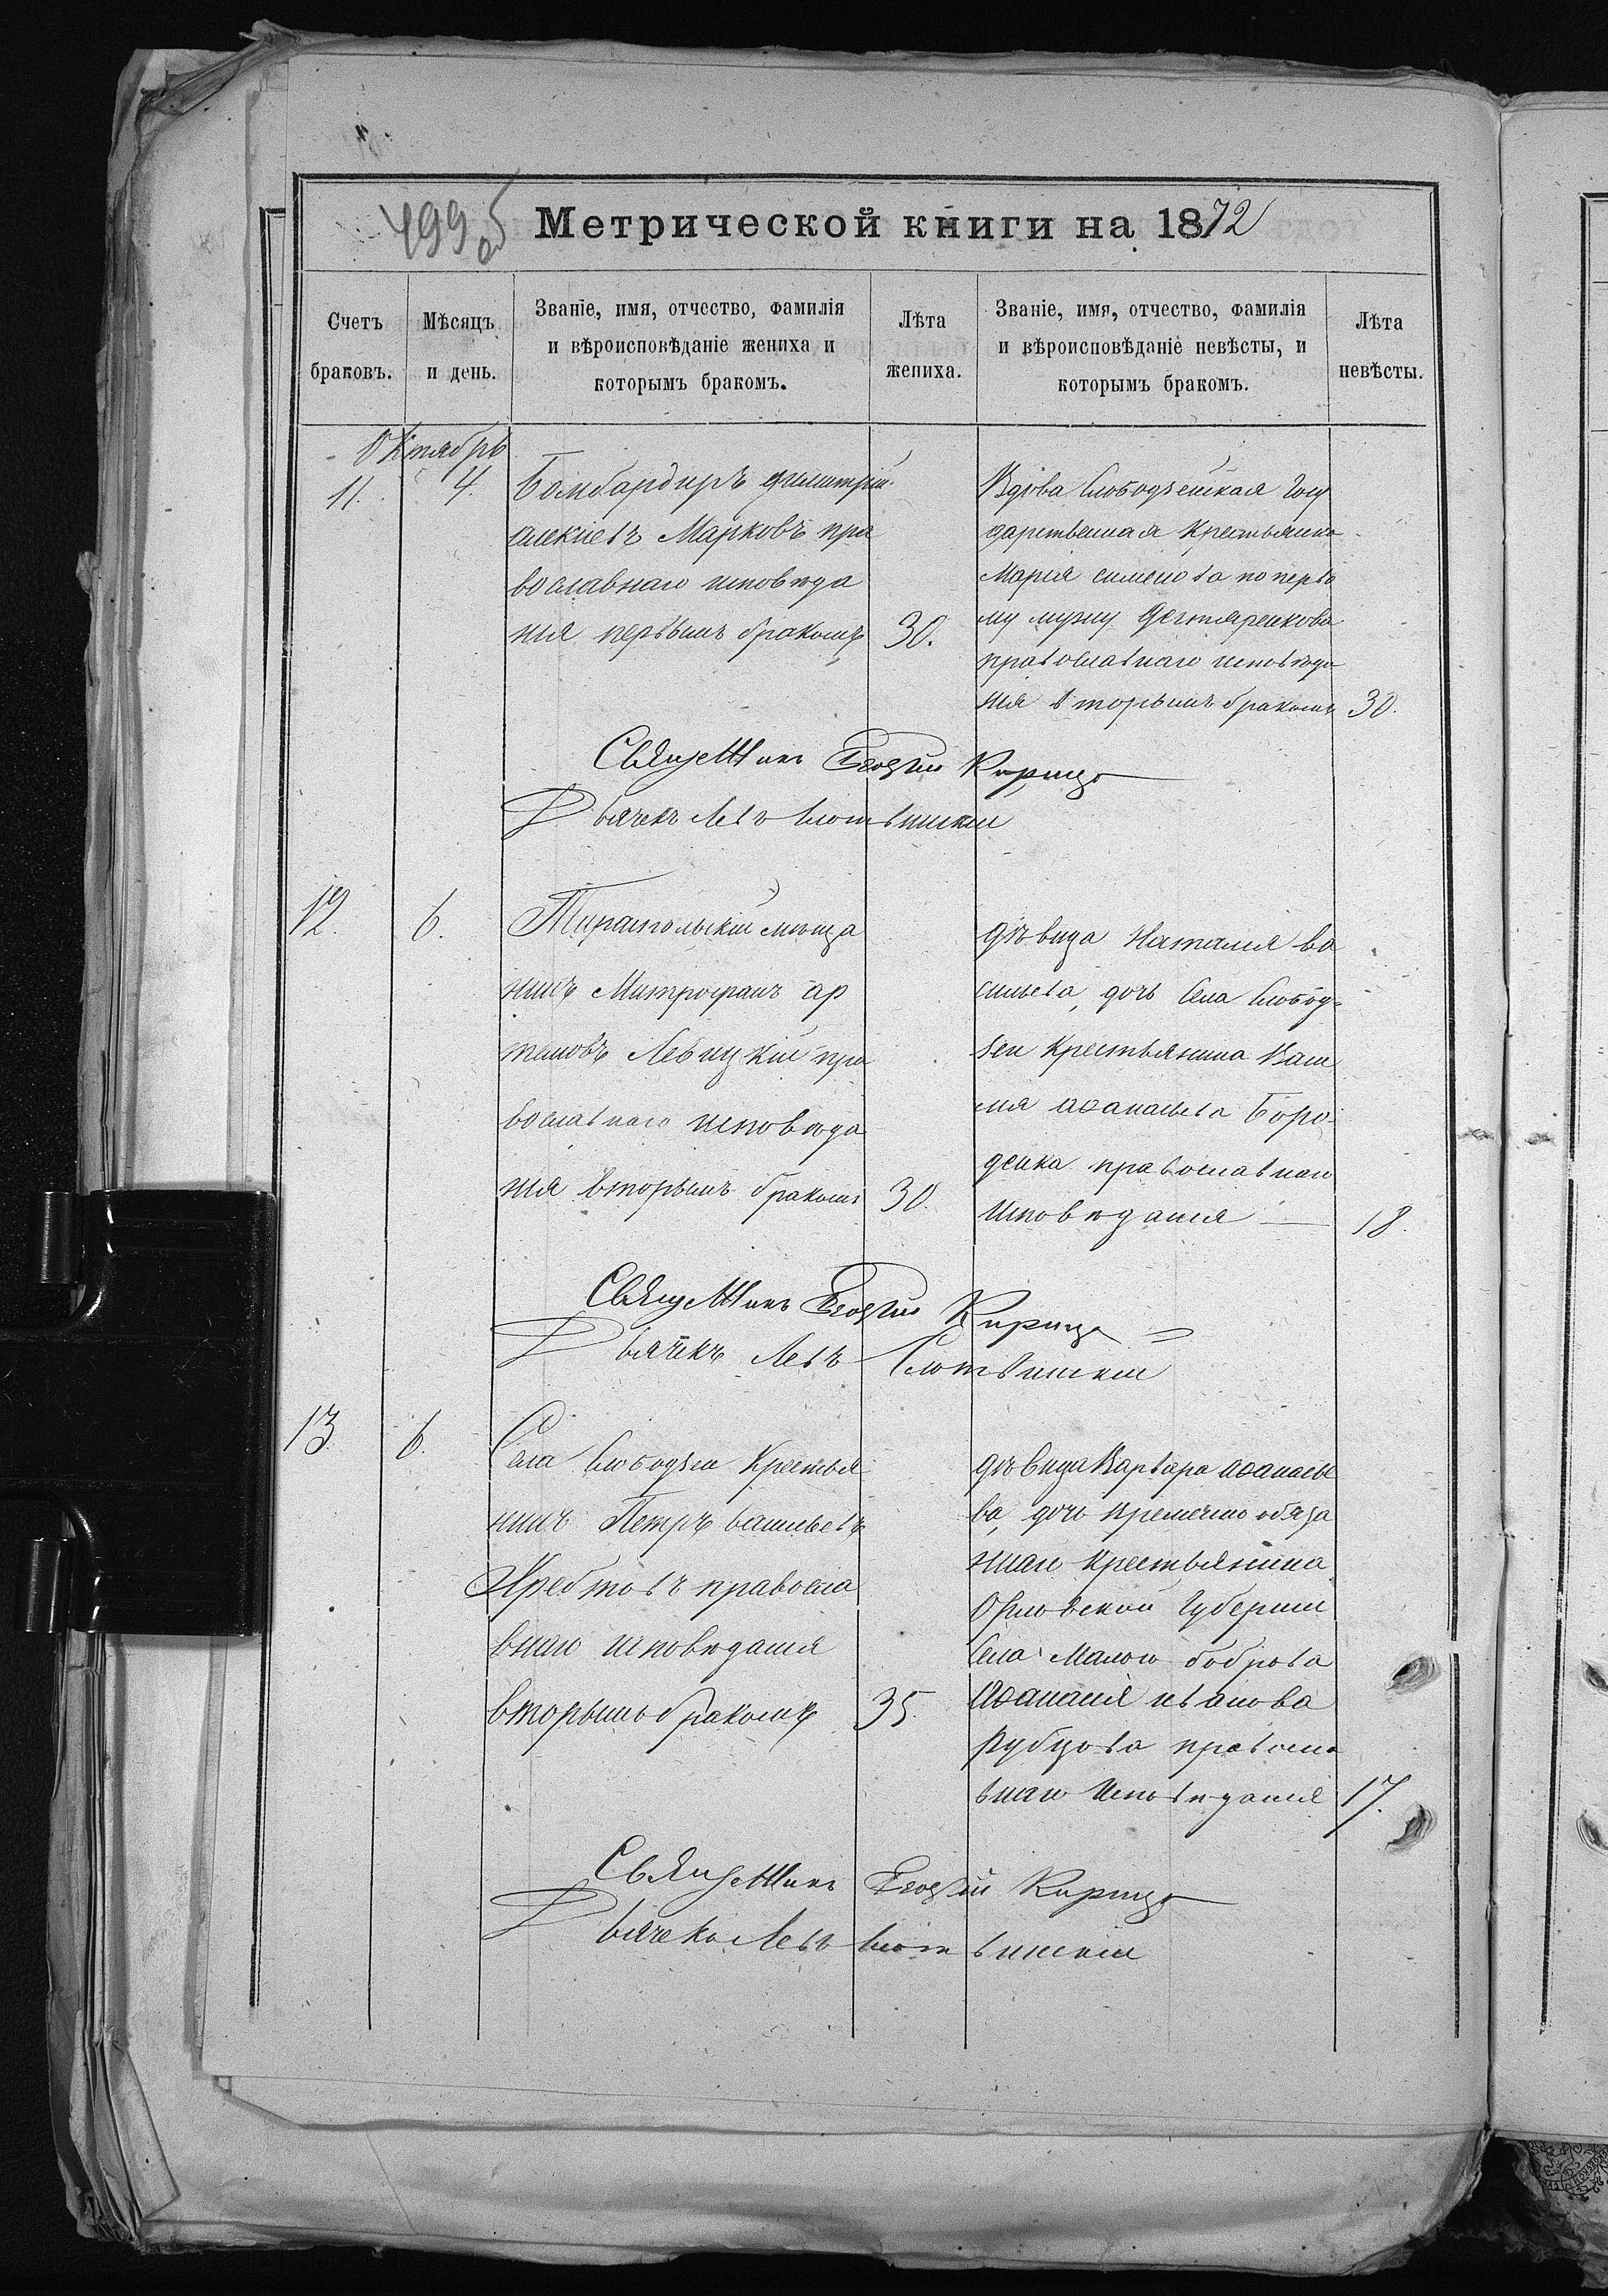 499 об
Метрической книги на 1872
Счетъ
браковъ.
Мѣсяцъ
и день.
Званіе, имя, отчество, фамилія
и вѣроисповѣданіе жениха и
которымъ бракомъ.
Лѣта
жениха.
Званіе, имя, отчество, фамилія
и вѣроисповѣданіе невѣсты, и
которымъ бракомъ.
Лѣта
невѣсты.
Октябрь
11.
4.
Бомбардиръ Димитрій
Алекіевъ Марковъ пра
вославнаго исповѣда
нія первымъ бракомъ
30.
Вдова Слободзейская Госу
дарственная Крестьянка
Марія Симеонова по перво
му мужу Дегтяренкова
православнаго исповѣда
нія вторымъ бракомъ
30.
Священникъ Георгій Кирица
Дьячекъ Левъ Слотвинскій
12.
6.
Тираспольскій мѣща
нинъ Митрофанъ Ар
темовъ Левицкій пра
вославнаго исповѣда
нія вторымъ бракомъ
30.
дѣвица Наталія Ва
сильева, дочь Села Слобод-
зеи Крестьянина Васи
лія Аѳанасьева Боро
денка православнаго
Исповѣданія
18.
Священникъ Георгій Кирица
Дьячекъ Левъ Слотвинскій
13.
6.
Села Слободзеи Крестья
нинъ Петръ Васильевъ
правосла
внаго исповѣданія
вторымъ бракомъ
35.
дѣвица Варвара Аѳанасье
ва, дочь временно обяза
ннаго крестьянина
Орловской Губерніи
Села Малого боброва
Аѳанасія иванова
Рубцова правосла
внаго Исповѣданія
17.
Священникъ Георгій Кирица
Дьячекъ Левъ Слотвинскій